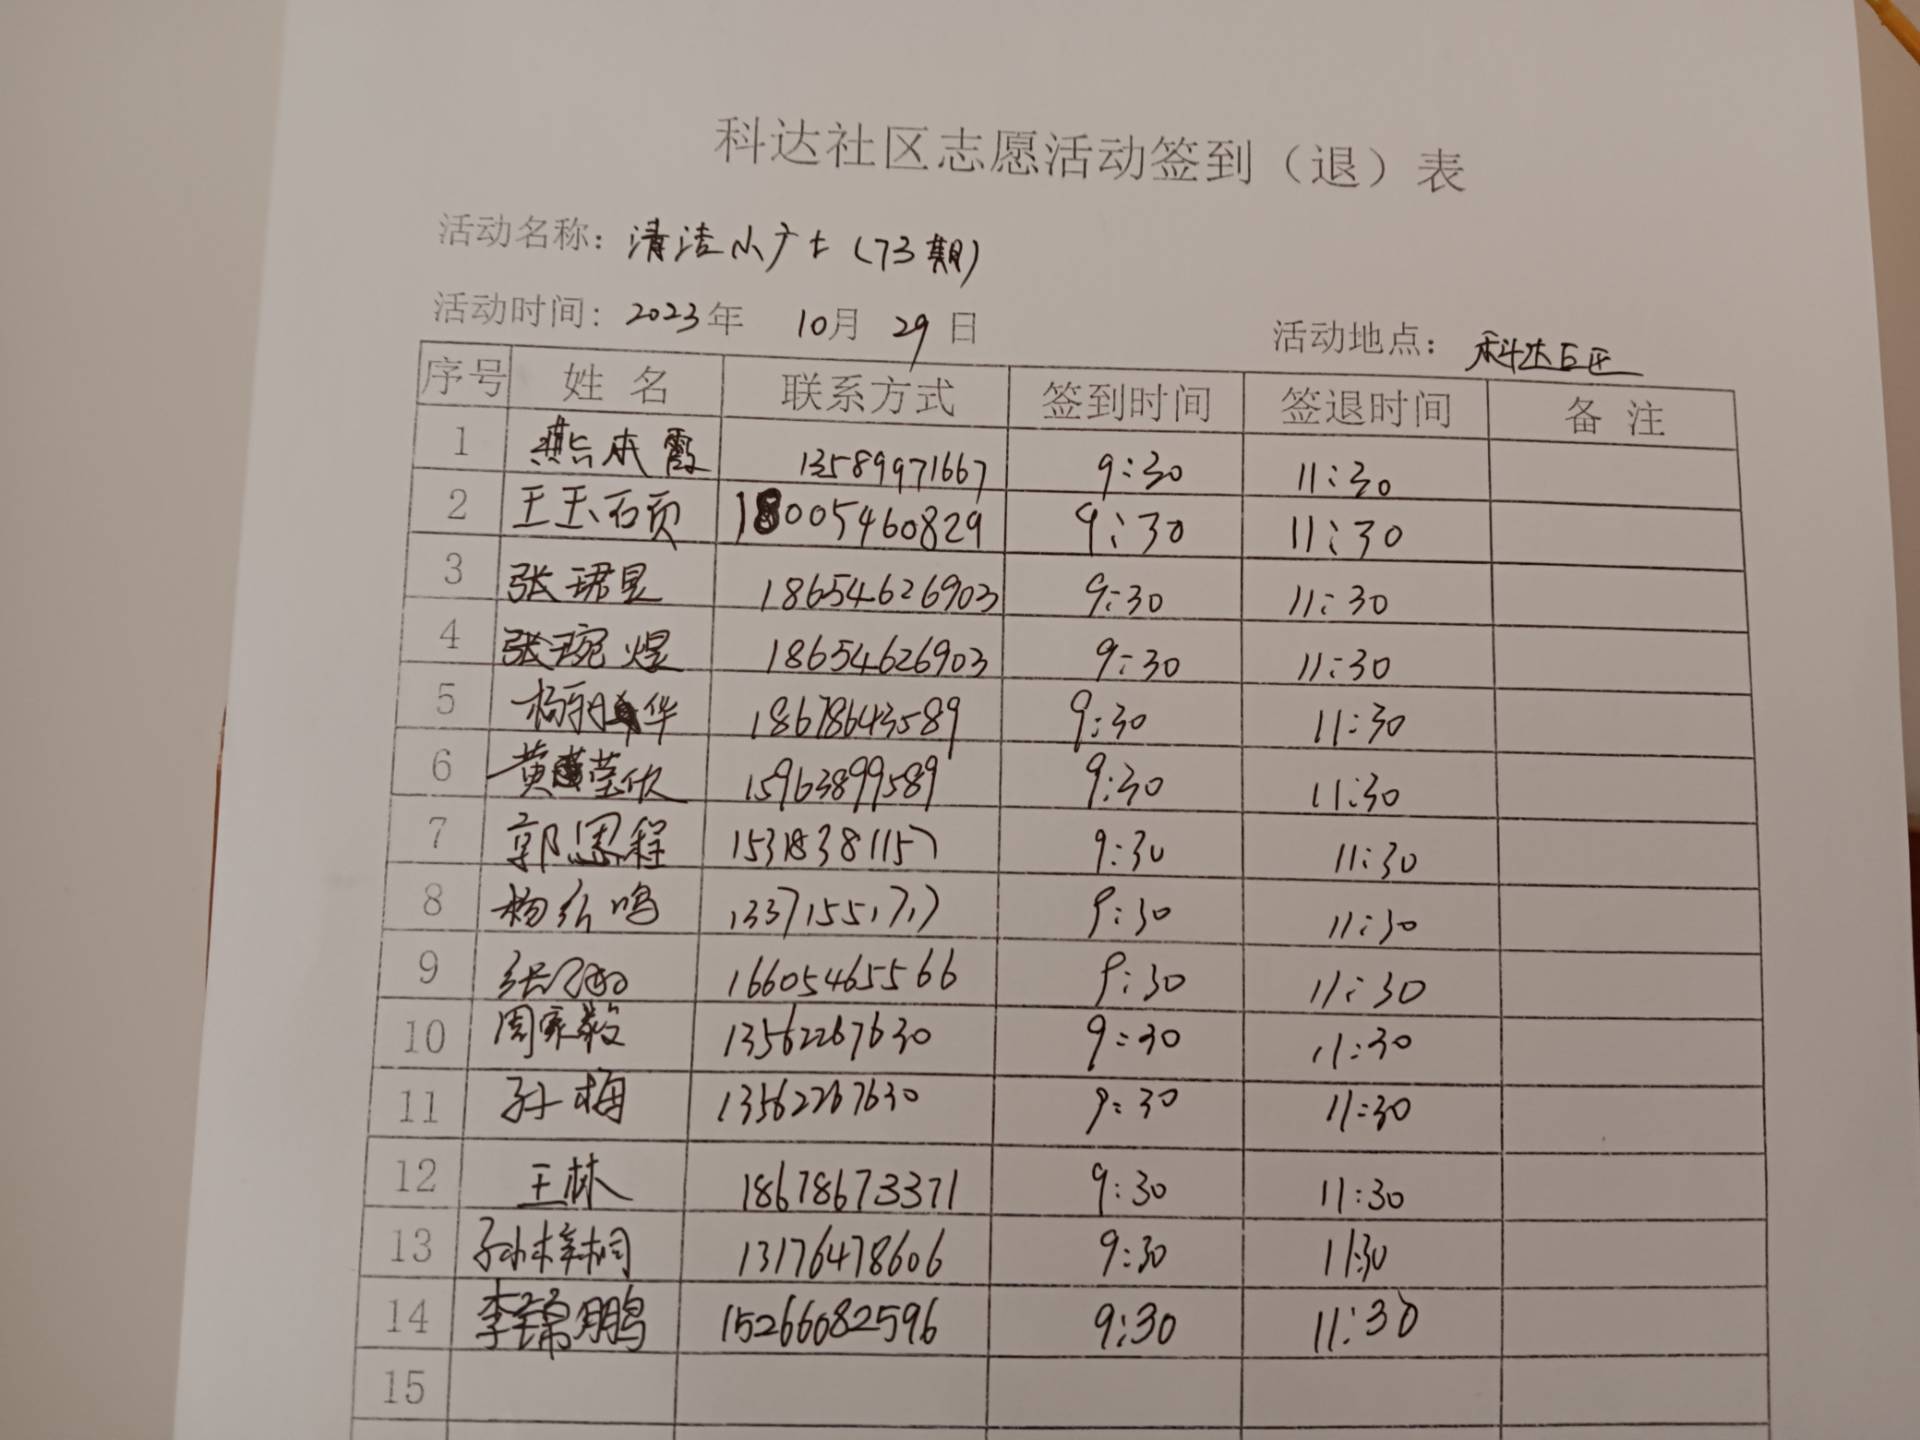 科达社区志愿活动签到（退）表
活动名称：清洁小广士（73期）
活动时间：2023年 10月 29日 活动地点：科达社区
序号 姓名 联系方式 签到时间 签退时间 备注
1 燕本霞 13589971667 9:30 11:30
2 王玉硕 18005460829 9:30 11:30
3 张珺昱 18654626903 9:30 11:30
4 张琬煜 18654626903 9:30 11:30
5 杨丽华 18678643589 9:30 11:30
6 黄莹欣 15963899589 9:30 11:30
7 郭恩程 15318381157 9:30 11:30
8 杨 鸣 13371551717 9:30 11:30
9 张 16605465566 9:30 11:30
10 周家毅 13562267630 9:30 11:30
11 孙梅 13562267630 9:30 11:30
12 王林 18678673371 9:30 11:30
13 孙梓桐 13176478606 9:30 11:30
14 李锦鹏 15266082596 9:30 11:30
15